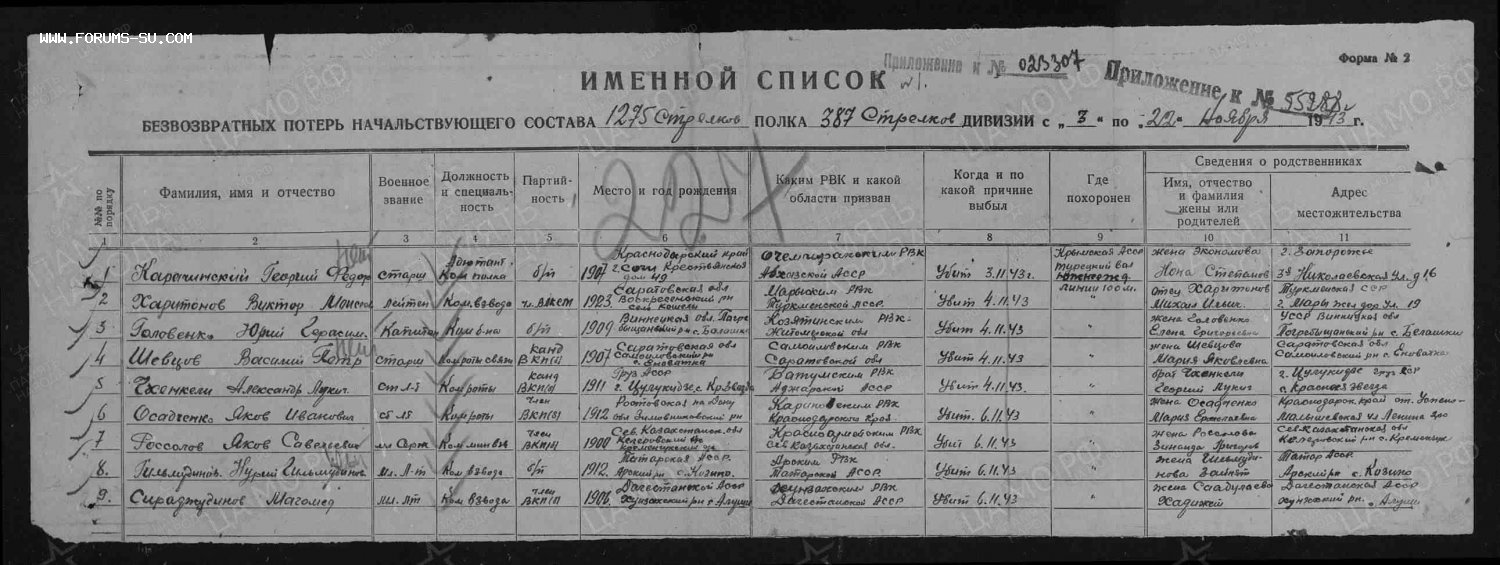 WWW.FORUMS-SU.COM
Форма № 2
Приложение к № 023307
Приложение к № 55988
ИМЕННОЙ СПИСОК №1.
БЕЗВОЗВРАТНЫХ ПОТЕРЬ НАЧАЛЬСТВУЮЩЕГО СОСТАВА 1275 Стрелков ПОЛКА 387 Стрелков ДИВИЗИИ с „3“ по „22“ Ноября 1943 г.
227
№№ по порядку
Фамилия, имя и отчество
Военное звание
Должность и специаль-
ность
Партий-
ность
Место и год рождения
Каким РВК и какой
области призван
Когда и по
какой причине
выбыл
Где
похоронен
Сведения о родственниках
Имя, отчество
и фамилия
жены или
родителей
Адрес
местожительства
1 2 3 4 5 6 7 8 9 10 11
1 Карачинский Георгий Федор старш Адютант. Ком полка б/п 1907 Краснодарский край г. Сочи Крестьянская дом 49 Очемчирским РВК Абхазской АССР Убит 3.11.43г. Крымская АССР Турецкий вал линии 100 м. жена Нона Степанов г. Запорожье Николаевская ул. д 16
2 Харитонов Виктор лейтен Ком. взвода чл. ВЛКСМ 1923 Саратовская обл Воскресенский рн Марыским РВК Туркменской ССР. Убит 4.11.43 " отец Харитонов Михаил Ильич. Туркменская ССР г. Мары жел. дор. ул. 19
3 Головенко Юрий Герасим. Капитан Ком б-на б/п 1909 Винницкая обл. Козятинским РВК- Житомирской обл Убит 4.11.43 " жена Головенко Елена Григоревна УССР Винницкая обл Погребищанский рн с. Белашки
4 Шевцов Василий Петр старш Ком роты связи канд ВКП(б) 1907 Саратовская обл Самойловский рн с. Еловатка Самойловским РВК Саратовской обл Убит 4.11.43 " жена Шевцова Мария Яковлевна Саратовская обл Самойловский рн с. Еловатка
5 Чхенкели Александр Лукич. ст л-т Ком роты канд ВКП(б) 1911 Груз АССР г. Цулукидзе с Кр. Звезда Батумским РВК Аджарской АССР Убит 4.11.43. " брат Чхенкели Георгий Лукич г. Цулукидзе Груз ССР с Красная звезда
6 Осадченко Яков Иванович ст лт Ком роты член ВКП(б) 1912 Ростовская на Дону обл Зимовниковский рн РВК Краснодарского края. Убит. 6.11.43 " жена Осадченко Мария Краснодарск. край ул Ленина
7 Россолов Яков Савельевич мл Серж. член ВКП(б) 1900 Сев. Казахстанск. обл Красноармейским РВК Сев Казахстанской обл Убит 6.11.43 " жена Россолова Зинаида Сев. Казахстанская обл рн с.
8. Гильмудинов. Нурей Гильмудинов мл. Л-т Ком взвода б/п 1912. Татарская АССР. Арский рн с. Козино. Арским РВК Татарской АССР. Убит 6.11.43 " жена Гильмуди-нова Татар АССР Арский рн с. Козино
9. Сиражудинов Магомед мл. лт Ком взвода член ВКП(б) 1906. Дагестанской АССР Хунзахский рн с. Хунзахским РВК Дагестанской АССР Убит 6.11.43 " жена Хадижей Дагестанская АССР Хунзахский рн.